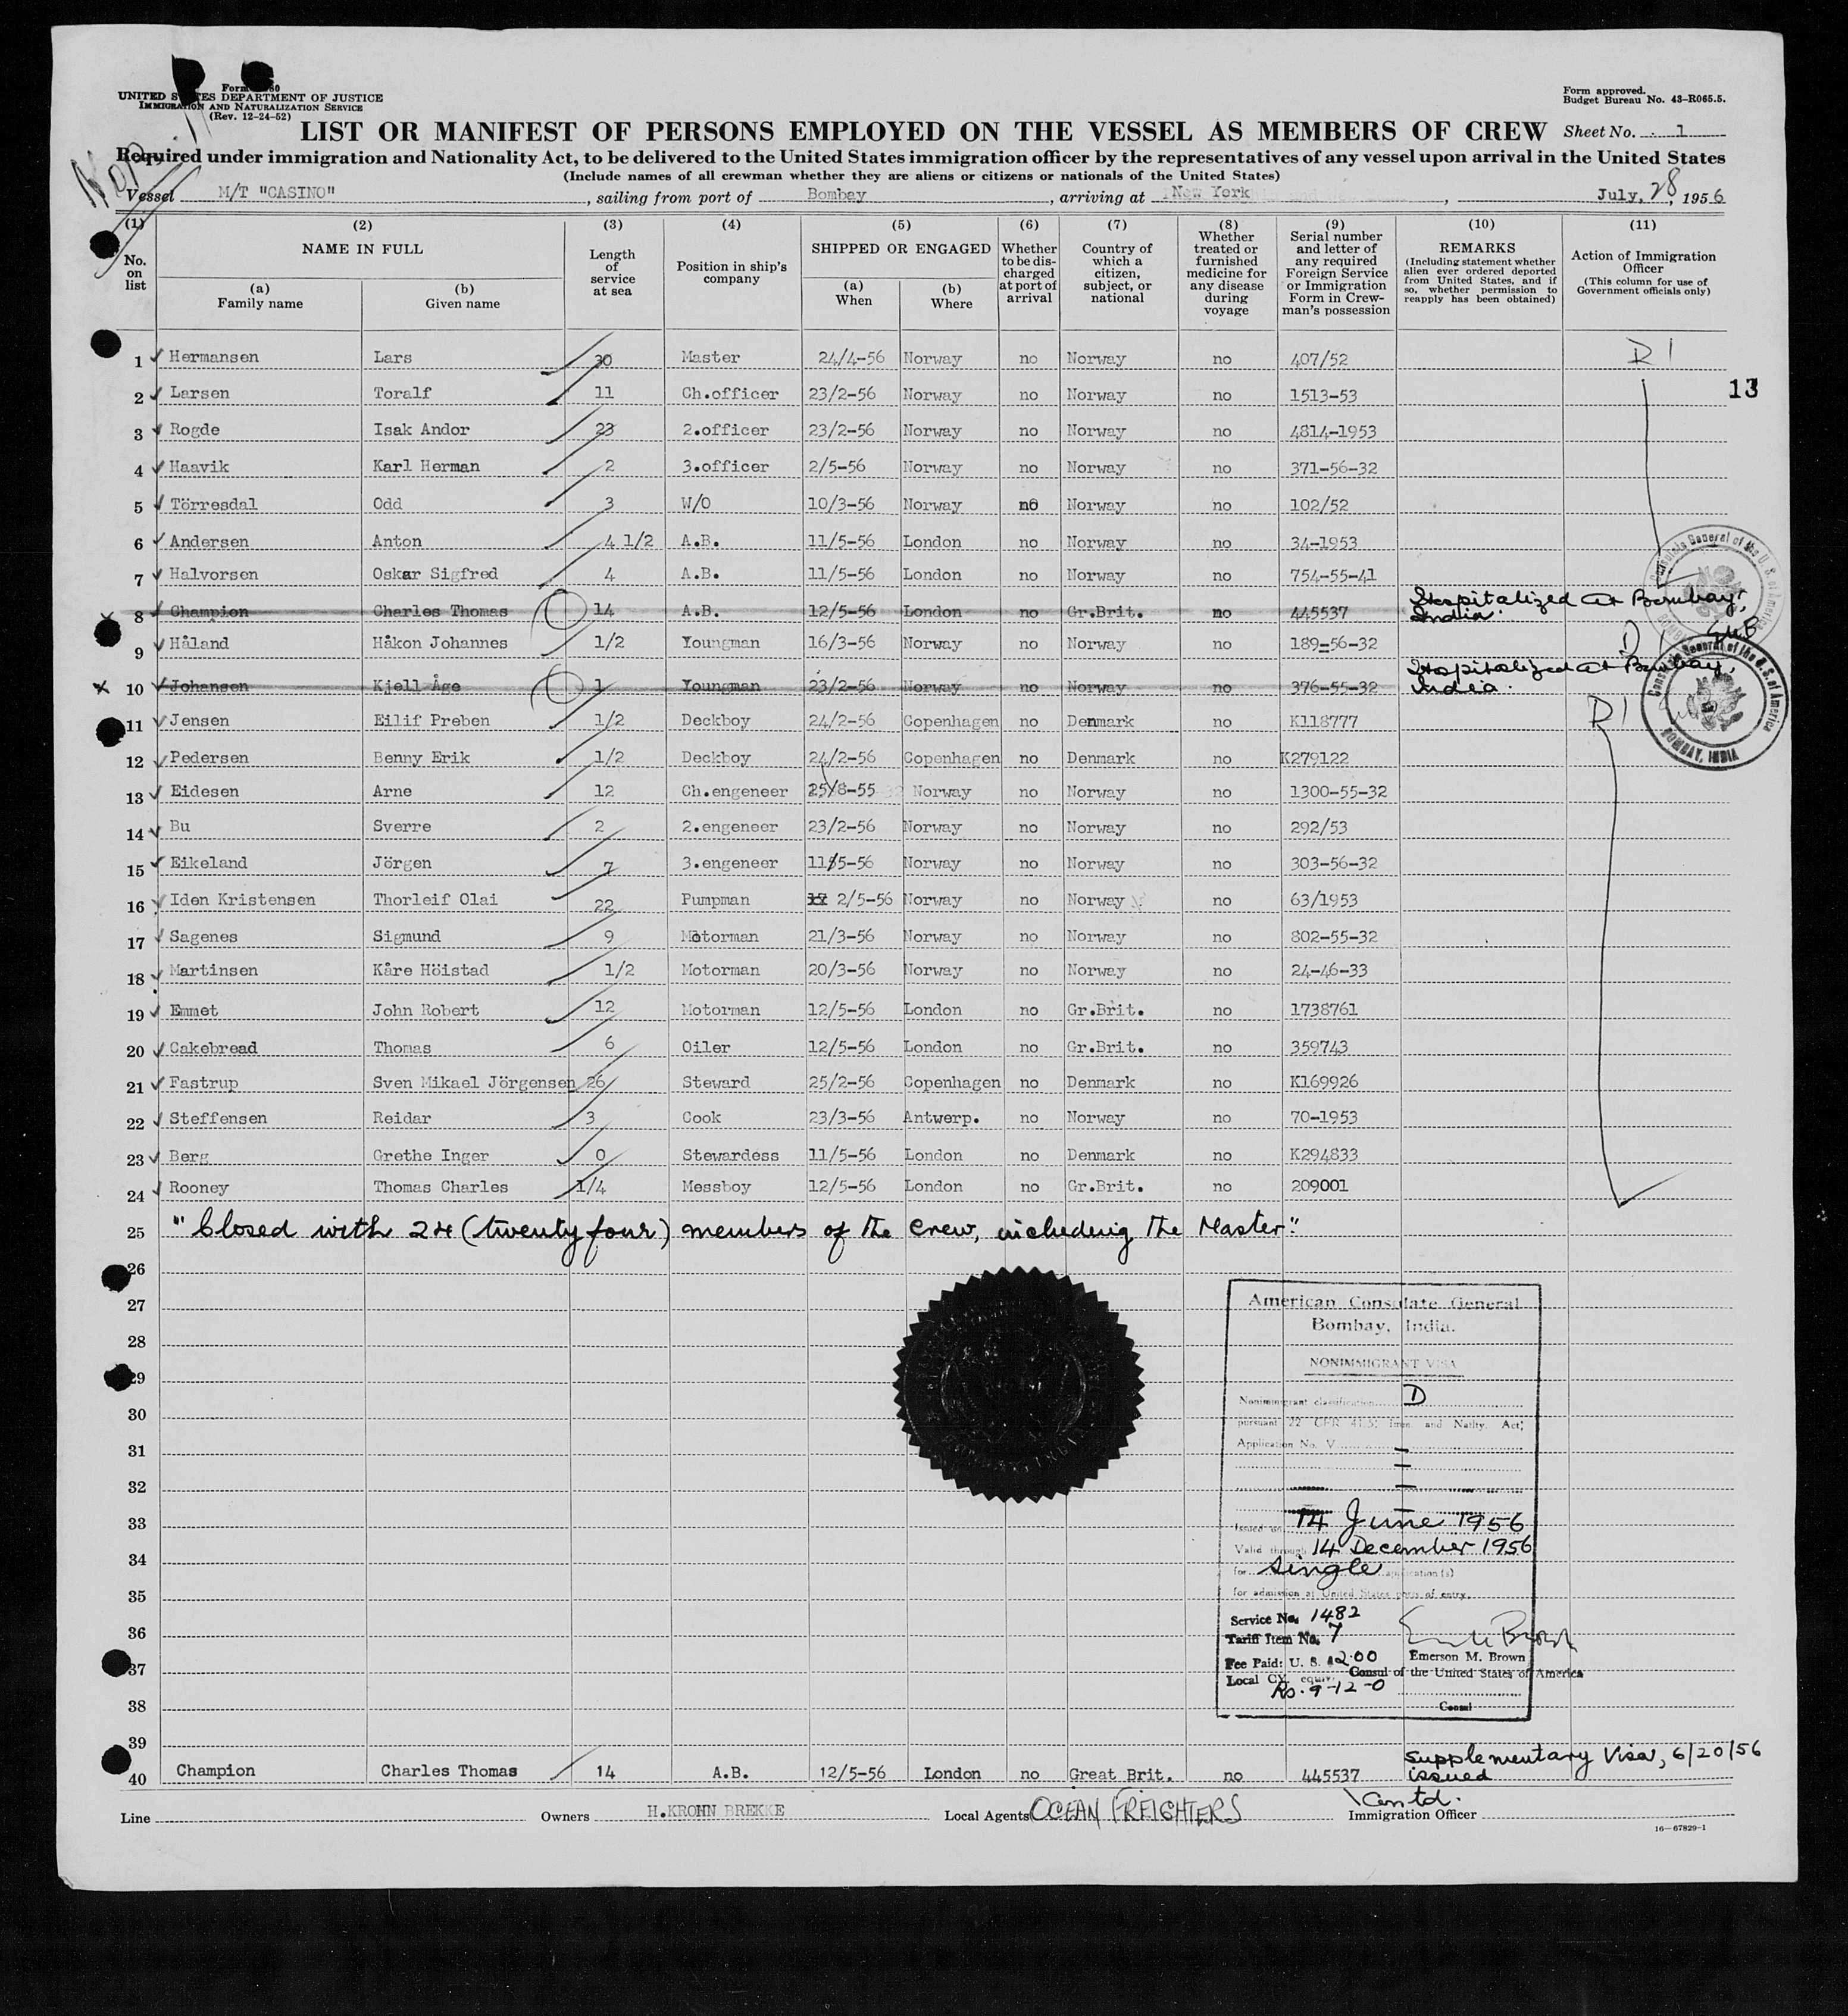 Form
UNITED STATES DEPARTMENT OF JUSTICE
IMMIGRATION AND NATURALIZATION SERVICE
(Rev. 12-24-52)
Form approved.
Budget Bureau No. 43-R065.5.
LIST OR MANIFEST OF PERSONS EMPLOYED ON THE VESSEL AS MEMBERS OF CREW Sheet No. 1
Required under immigration and Nationality Act, to be delivered to the United States immigration officer by the representatives of any vessel upon arrival in the United States
(Include names of all crewman whether they are aliens or citizens or nationals of the United States)
Vessel M/T "CASINO", sailing from port of Bombay, arriving at New York, July, 28, 1956
(1) No. on list
(2) NAME IN FULL (a) Family name (b) Given name
(3) Length of service at sea
(4) Position in ship's company
(5) SHIPPED OR ENGAGED (a) When (b) Where
(6) Whether to be discharged at port of arrival
(7) Country of which a citizen, subject, or national
(8) Whether treated or furnished medicine for any disease during voyage
(9) Serial number and letter of any required Foreign Service or Immigration Form in Crewman's possession
(10) REMARKS (Including statement whether alien ever ordered deported from United States, and if so, whether permission to reapply has been obtained)
(11) Action of Immigration Officer (This column for use of Government officials only)
1 Hermansen Lars 30 Master 24/4-56 Norway no Norway no 407/52 D 1
2 Larsen Toralf 11 Ch.officer 23/2-56 Norway no Norway no 1513-53 13
3 Rogde Isak Andor 23 2.officer 23/2-56 Norway no Norway no 4814-1953
4 Haavik Karl Herman 2 3.officer 2/5-56 Norway no Norway no 371-56-32
5 Törresdal Odd 3 W/O 10/3-56 Norway no Norway no 102/52
6 Andersen Anton 4 1/2 A.B. 11/5-56 London no Norway no 34-1953
7 Halvorsen Oskar Sigfred 4 A.B. 11/5-56 London no Norway no 754-55-41
8 Champion Charles Thomas 14 A.B. 12/5-56 London no Gr.Brit. no 445537 Hospitalized at Bombay, India.
9 Håland Håkon Johannes 1/2 Youngman 16/3-56 Norway no Norway no 189-56-32 D 1
10 Johansen Kjell Åge 1 Youngman 23/2-56 Norway no Norway no 376-55-32 Hospitalized at Bombay, India.
11 Jensen Eilif Preben 1/2 Deckboy 24/2-56 Copenhagen no Denmark no K118777 D 1
12 Pedersen Benny Erik 1/2 Deckboy 24/2-56 Copenhagen no Denmark no K279122
13 Eidesen Arne 12 Ch.engeneer 25/8-55 Norway no Norway no 1300-55-32
14 Bu Sverre 2 2.engeneer 23/2-56 Norway no Norway no 292/53
15 Eikeland Jörgen 7 3.engeneer 11/5-56 Norway no Norway no 303-56-32
16 Iden Kristensen Thorleif Olai 22 Pumpman 2/5-56 Norway no Norway no 63/1953
17 Sagenes Sigmund 9 Motorman 21/3-56 Norway no Norway no 802-55-32
18 Martinsen Kåre Höistad 1/2 Motorman 20/3-56 Norway no Norway no 24-46-33
19 Emmet John Robert 12 Motorman 12/5-56 London no Gr.Brit. no 1738761
20 Cakebread Thomas 6 Oiler 12/5-56 London no Gr.Brit. no 359743
21 Fastrup Sven Mikael Jörgensen 26 Steward 25/2-56 Copenhagen no Denmark no K169926
22 Steffensen Reidar 3 Cook 23/3-56 Antwerp. no Norway no 70-1953
23 Berg Grethe Inger 0 Stewardess 11/5-56 London no Denmark no K294833
24 Rooney Thomas Charles 1/4 Messboy 12/5-56 London no Gr.Brit. no 209001
25 "Closed with 24 (twenty four) members of the crew, including the Master."
26
27
28
29
30
31
32
33
34
35
36
37
38
39
40 Champion Charles Thomas 14 A.B. 12/5-56 London no Great Brit. no 445537 Supplementary Visa, 6/20/56 issued
Contd.
Consulate General of the U.S. of America
Consulate General of the U.S. of America
BOMBAY, INDIA
American Consulate General
Bombay, India.
NONIMMIGRANT VISA
Nonimmigrant classification D
pursuant 22 CFR 41.5; Imm. and Natlty. Act;
Application No. V
Issued on 14 June 1956
Valid through 14 December 1956
for single application(s)
for admission at United States ports of entry.
Service No. 1482
Tariff Item No. 7
Fee Paid: U. S. $2.00
Local CY. equiv. Rs. 9-12-0
Emerson M. Brown
Consul of the United States of America
Consul
Line Owners H.KROHN BREKKE Local Agents OCEAN FREIGHTERS Immigration Officer
16—67829-1